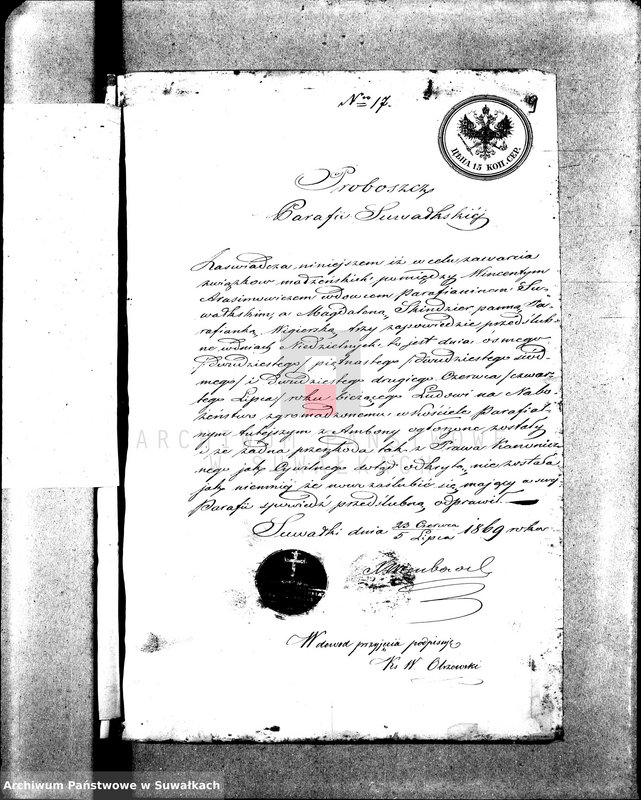 Nro 17.
9
ЦѢНА 15 КОП. СЕР.
Proboszcz
Parafii Suwałkskiéj
Zaświadcza niniejszem iż w celu zawarcia
związkow małżeńskich pomiędzy Wincentym
Arasimowiczem wdowcem Parafianinem Su-
wałkskim, a Magdaleną Skindzier panną Pa-
rafianką Wigierską, trzy zapowiedzie przedślub-
ne w dniach Niedzielnych, to jest dnia: osmego
/dwudziestego/ piętnastego /dwudziestego siód-
mego/ i dwudziestego drugiego Czerwca /czwar-
tego Lipca/ roku bieżącego Ludowi na Nabo-
żeństwo zgromadzonemu w Kościele Parafial-
nym tutejszym z Ambony ogłoszone zostały
i że żadna przeszkoda tak z Prawa Kanonicz-
nego jak Cywilnego dotąd odkrytą nie została,
jak niemniej że nowozaślubić się mający w swej
Parafii spowiedź przedślubną odprawił.
Suwałki dnia 23 Czerwca / 5 Lipca 1869 roku
W dowod przyjęcia podpisuję
Ks W. Olszewski
ARCHIWUM PAŃSTWOWE
W SUWAŁKACH
Archiwum Państwowe w Suwałkach